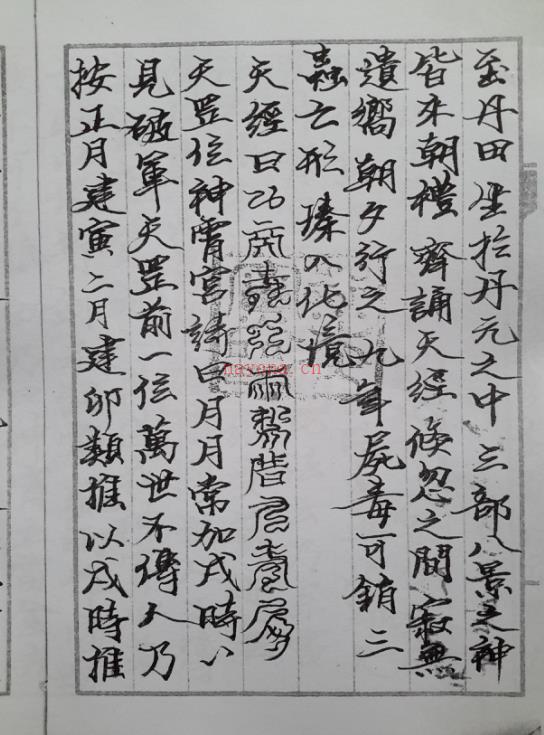 至丹田坐於丹元之中三部八景之神
皆來朝禮齊誦天經倐忽之間寂無
遺嚮朝夕行之九年屍毒可銷三
蟲亡形臻入化境
天經曰
天罡位神霄宫訣曰月月常加戌時時
見破軍天罡前一位萬世不傳人乃
按正月建寅二月建卯類推以戌時推
nayona.cn